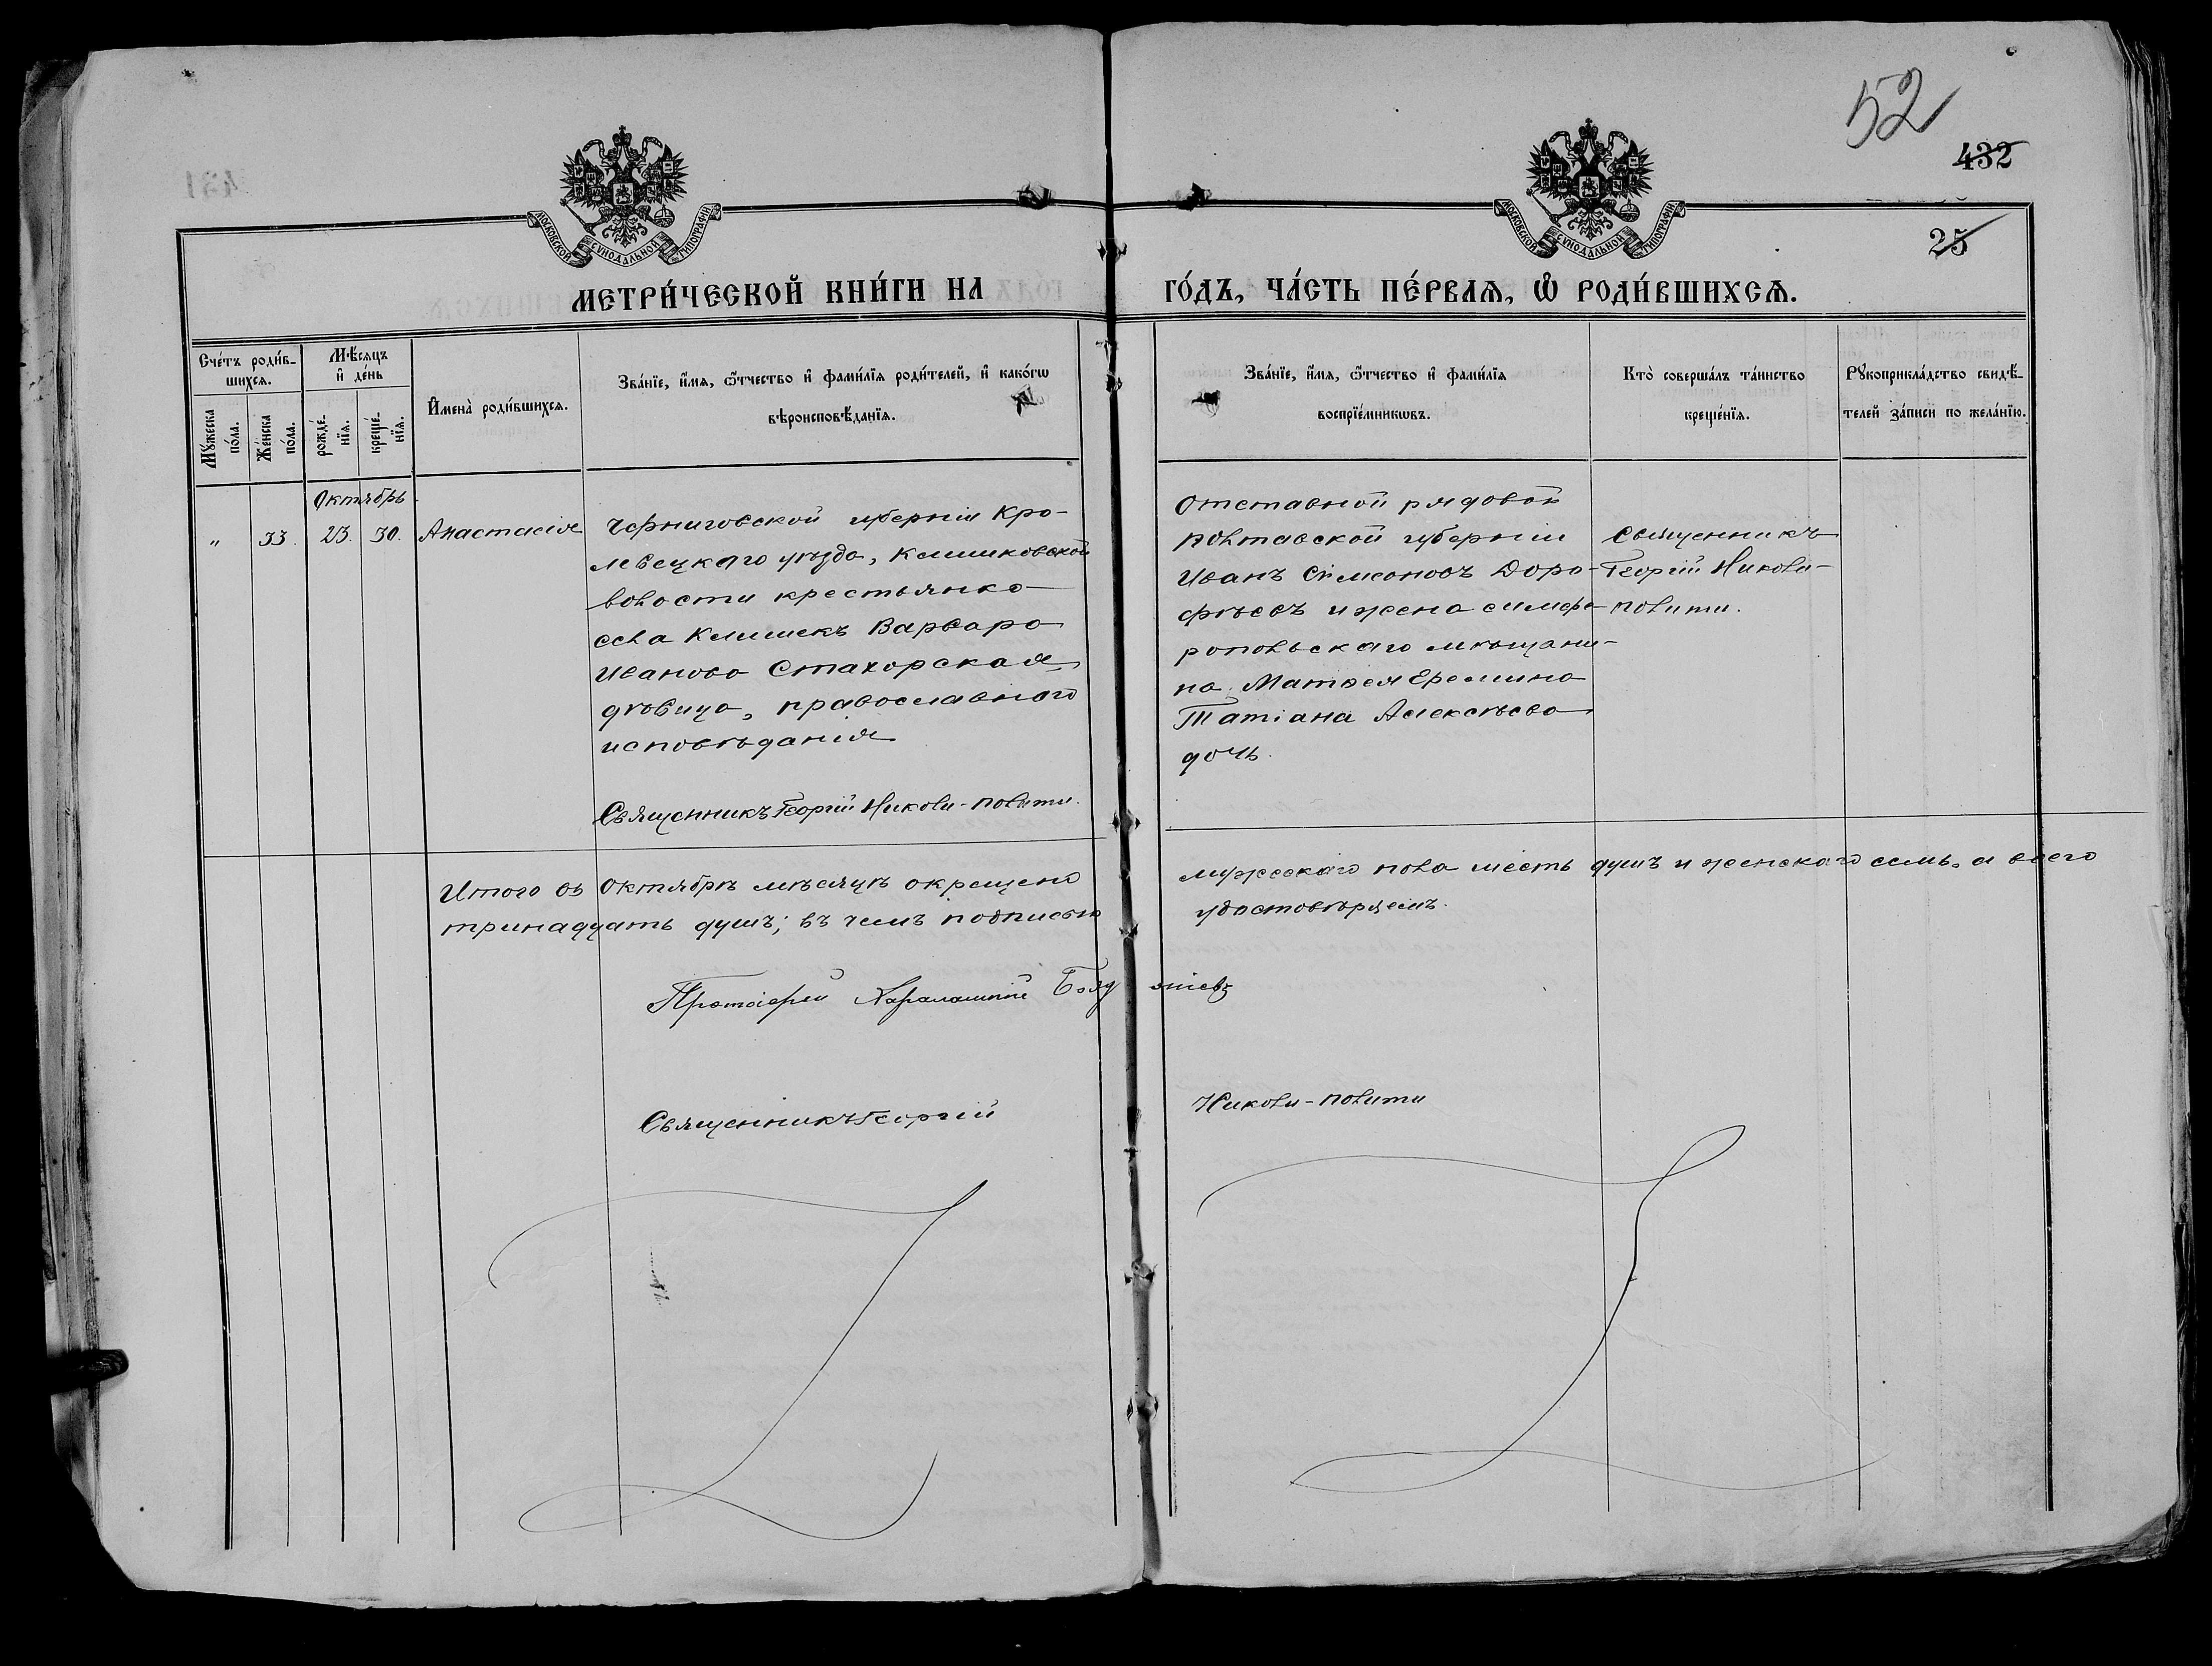 52
432
25
МОСКОВСКОЙ СѴНОДАЛЬНОЙ ТИПОГРАФИИ
МОСКОВСКОЙ СѴНОДАЛЬНОЙ ТИПОГРАФИИ
МЕТРИ́ЧЕСКОЙ КНИ́ГИ НА
ГО́ДЪ, ЧА́СТЬ ПЕ́РВАѦ, Ѡ҆ РОДИ́ВШИХСѦ.
Сче́тъ роди́в-
шихсѧ.
Мꙋ́жеска
по́ла.
Же́нска
по́ла.
Мѣ́сѧцъ
и҆ де́нь
рожде́-
нїѧ.
креще́-
нїѧ.
И҆мена̀ роди́вшихсѧ.
Зва́нїе, и҆́мѧ, ѻ҆́тчество и҆ фами́лїѧ роди́телей, и҆ како́гѡ
вѣроисповѣ́данїѧ.
Зва́нїе, и҆́мѧ, ѻ҆́тчество и҆ фами́лїѧ
воспрїе́мникѡвъ.
Кто̀ соверша́лъ та́инство
креще́нїѧ.
Рꙋкоприкла́дство свидѣ́-
телей за́писи по жела́нїю.
Октябрь
" 33. 23. 30. Анастасія
Черниговской губерніи Кро-
левецкаго уѣзда, Клишковской
волости крестьянка
села Клишекъ Варвара
Иванова Стахорская
дѣвица, православнаго
исповѣданія
Священникъ Георгій Николи-Полити.
Отставной рядовой
полтавской губерніи
Иванъ Симеоновъ Доро-
фѣевъ и жена симфе-
ропольскаго мѣщани-
на Матѳея Еремина
Татіана Алексѣева
дочь.
Священникъ
Георгій Николи-
полити.
Итого въ Октябрѣ мѣсяцѣ окрещено мужескаго пола шесть душъ и женскаго семь, а всего
тринадцать душъ; въ чемъ подписью удостовѣряемъ.
Протоіерей Харалампій
Священникъ Георгій Николи-Полити